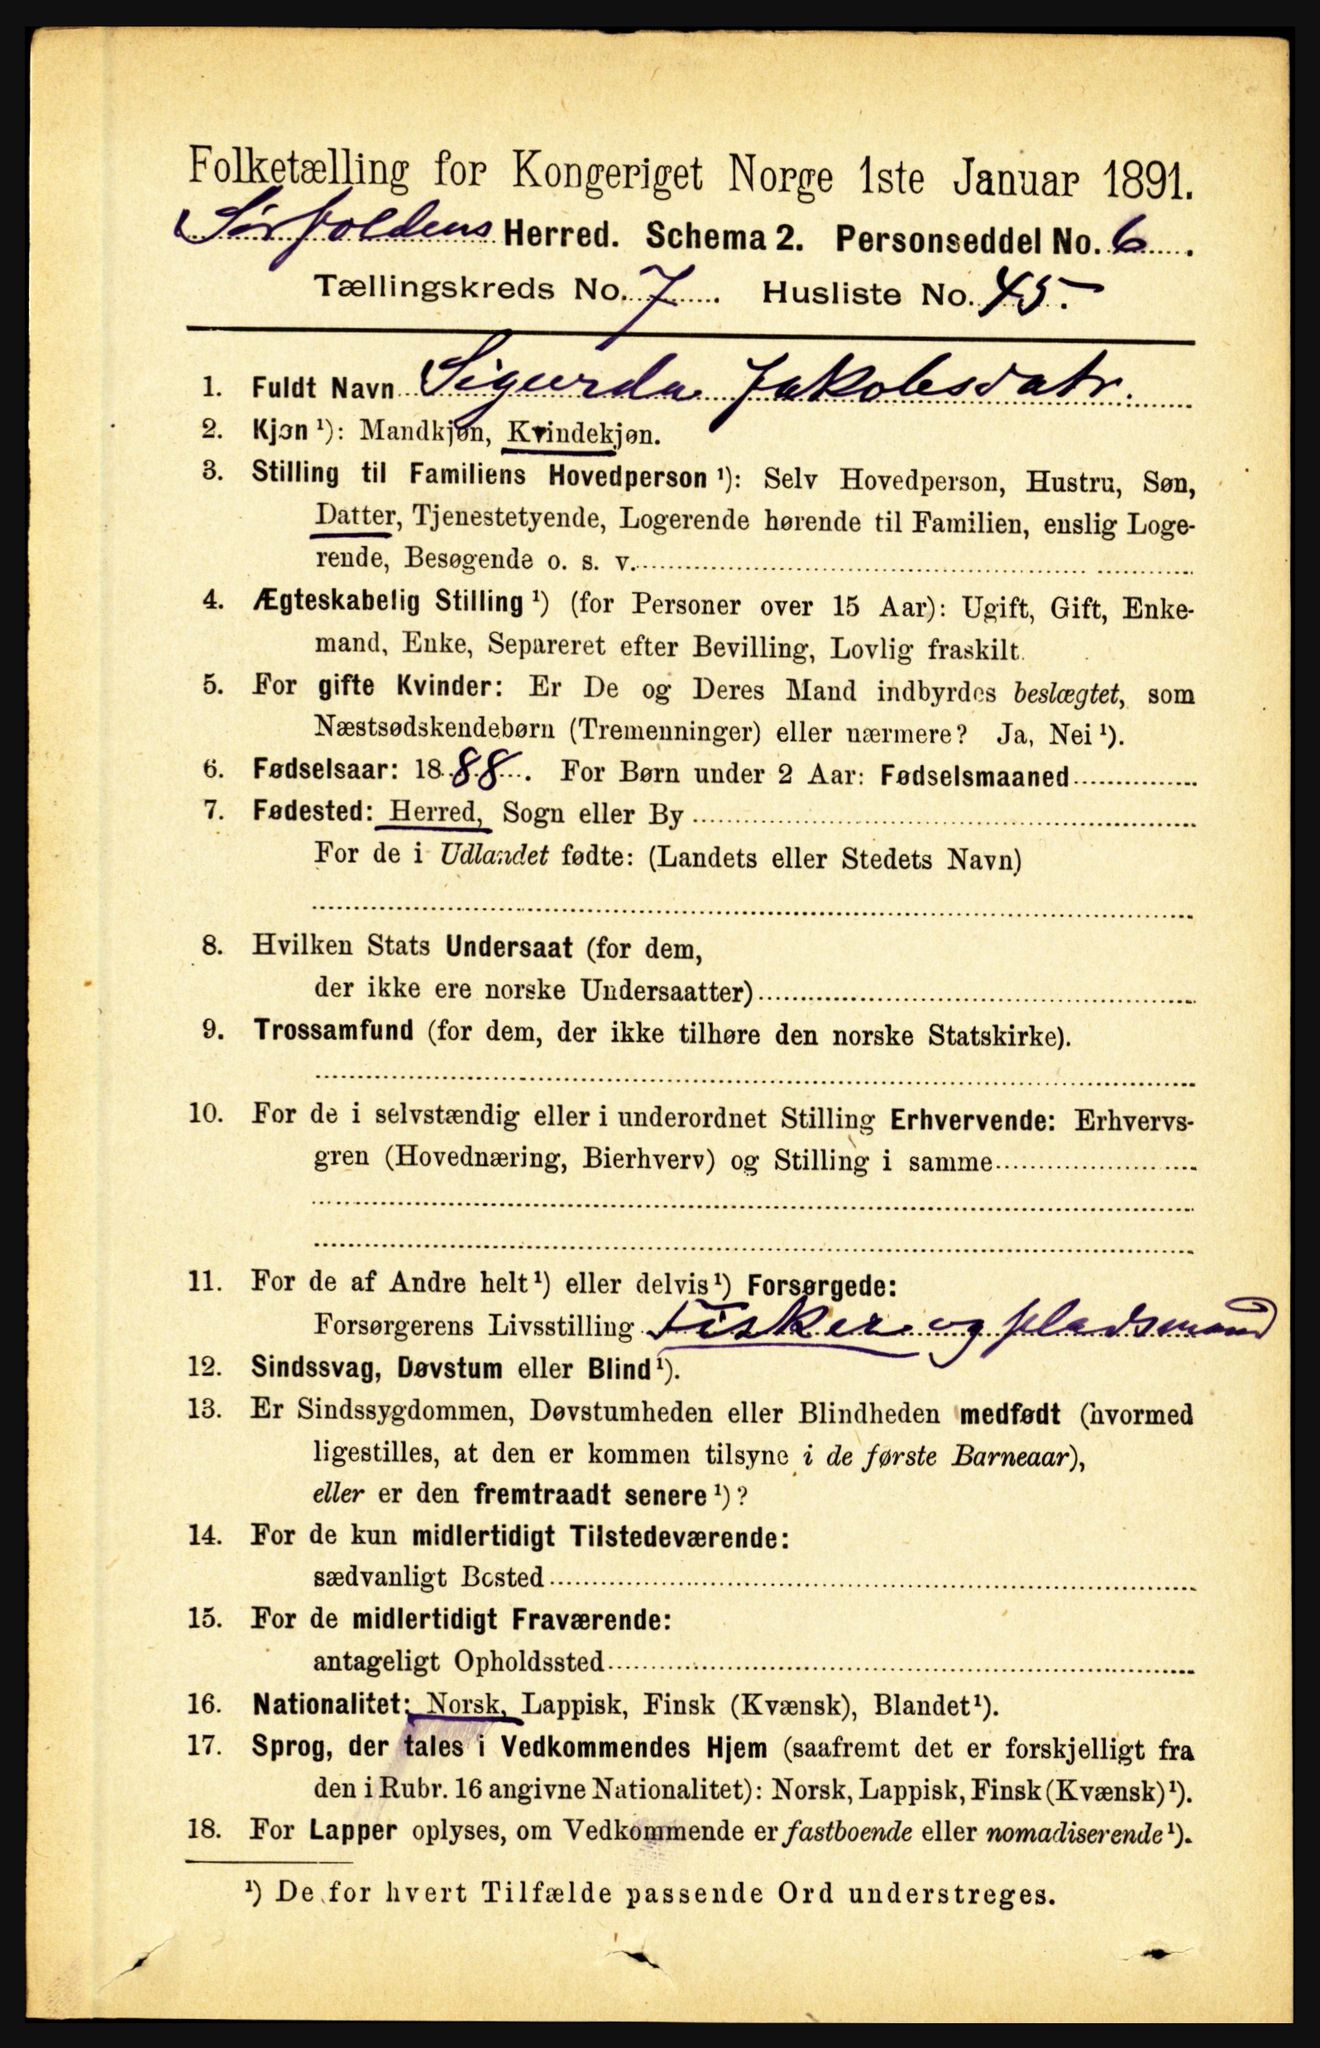 Folketælling for Kongeriget Norge 1ste Januar 1891.
Sørfoldens Herred. Schema 2. Personseddel No. 6
Tællingskreds No. 7 Husliste No. 45.
1. Fuldt Navn Sigurda Jakobsdatr.
2. Kjøn ¹): Mandkjøn, Kvindekjøn.
3. Stilling til Familiens Hovedperson ¹): Selv Hovedperson, Hustru, Søn,
Datter, Tjenestetyende, Logerende hørende til Familien, enslig Loge-
rende, Besøgende o. s. v.
4. Ægteskabelig Stilling ¹) (for Personer over 15 Aar): Ugift, Gift, Enke-
mand, Enke, Separeret efter Bevilling, Lovlig fraskilt.
5. For gifte Kvinder: Er De og Deres Mand indbyrdes beslægtet, som
Næstsødskendebørn (Tremenninger) eller nærmere? Ja, Nei ¹).
6. Fødselsaar: 1888. For Børn under 2 Aar: Fødselsmaaned
7. Fødested: Herred, Sogn eller By
For de i Udlandet fødte: (Landets eller Stedets Navn)
8. Hvilken Stats Undersaat (for dem,
der ikke ere norske Undersaatter)
9. Trossamfund (for dem, der ikke tilhøre den norske Statskirke).
10. For de i selvstændig eller i underordnet Stilling Erhvervende: Erhvervs-
gren (Hovednæring, Bierhverv) og Stilling i samme
11. For de af Andre helt ¹) eller delvis ¹) Forsørgede:
Forsørgerens Livsstilling Fisker og pladsmand
12. Sindssvag, Døvstum eller Blind ¹).
13. Er Sindssygdommen, Døvstumheden eller Blindheden medfødt (hvormed
ligestilles, at den er kommen tilsyne i de første Barneaar),
eller er den fremtraadt senere ¹)?
14. For de kun midlertidigt Tilstedeværende:
sædvanligt Bosted
15. For de midlertidigt Fraværende:
antageligt Opholdssted
16. Nationalitet: Norsk, Lappisk, Finsk (Kvænsk), Blandet ¹).
17. Sprog, der tales i Vedkommendes Hjem (saafremt det er forskjelligt fra
den i Rubr. 16 angivne Nationalitet): Norsk, Lappisk, Finsk (Kvænsk) ¹).
18. For Lapper oplyses, om Vedkommende er fastboende eller nomadiserende ¹).
¹) De for hvert Tilfælde passende Ord understreges.